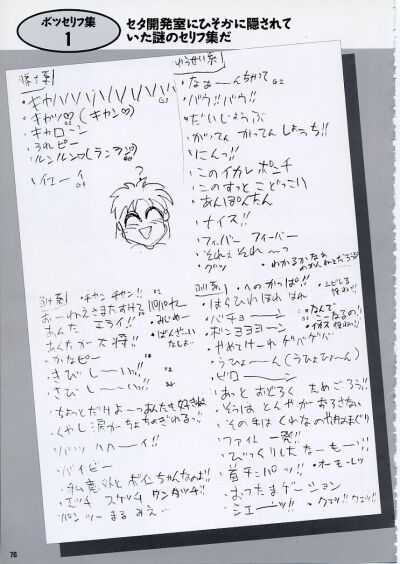 ボツセリフ集
1
セタ開発室にひそかに隠されて
いた謎のセリフ集だ
・キャハハハハハハ
・キャッ♡(キャン♡)
・キャローン
・うれピー
・ルンルン♡(ランラン)
・イエーイ
ゆうせい系
・なぁーんちゃって
・バウ!!バウ!!
・だいじょうぶ
・がってん がってん しょうち!!
・にんっ!!
・このイカレポンチ
・このすっとこどっこい
・あんぽんたん
・ナイス!!
・フィーバー フィーバー
・それぇそれーっ
・グッ
・わかるかなぁ
・チャンチャン!!
おーねえさまたすけて
あんた エライ!!
あんたが大将!!
・かなピー
・きびしーいっ!!
・さびしーいっ!!
パパパヤー
・みじめー
・ばんざーい
・ちょっとだけよーっあんたも好きね
・ハッハハーイ!!
・バイビー
・私意外とボインちゃんなのよ!!
・エッチ スケッチ ワンタッチ!!
・パンツーまるみえ
・へのかっぱ!!
・はらひれほれはれ
・バチョーン
・ボンヨヨヨーン
・なんで
こーなるの!!
・やめてけーれ ゲバゲバ
・うひょーん(うひょひょーん)
・ピローーン
・あっとおどろく ためごろう!!
・そうはとんやがおろさない
・その手はくわなのやきはまぐり
・ファイト一発!!
・びっくりしたなーもー!!
・首チョンパッ!!
・オーモーレツ
・おったまゲーション
・シェーッ!!
・クェッ!!クェッ!!
76